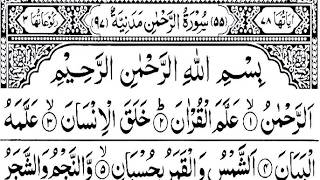 اٰيَاتُهَا ٧٨ (٥٥) سُوْرَةُ الرَّحْمٰنِ مَدَنِيَّةٌ (٩٧) رُكُوْعَاتُهَا ٣
بِسْمِ اللّٰهِ الرَّحْمٰنِ الرَّحِيْمِ
اَلرَّحْمٰنُ ۙ﴿١﴾ عَلَّمَ الْقُرْاٰنَ ؕ﴿٢﴾ خَلَقَ الْاِنْسَانَ ۙ﴿٣﴾ عَلَّمَهُ
الْبَيَانَ ﴿٤﴾ اَلشَّمْسُ وَالْقَمَرُ بِحُسْبَانٍ ۪﴿٥﴾ وَّالنَّجْمُ وَالشَّجَرُ